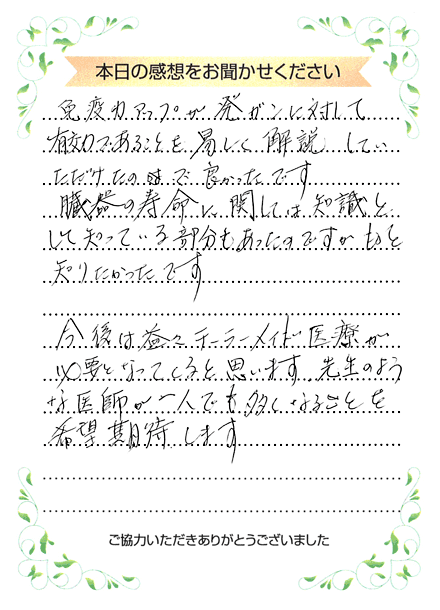 本日の感想をお聞かせください
免疫力アップが発ガンに対して
有効であることを易しく解説してい
ただけたので良かったです
臓器の寿命に関しては知識と
して知っている部分もあったのですがもっと
知りたかったです
今後は益々テーラーメイド医療が
必要となってくると思います 先生のよう
な医師が一人でも多くなることを
希望期待します
ご協力いただきありがとうございました